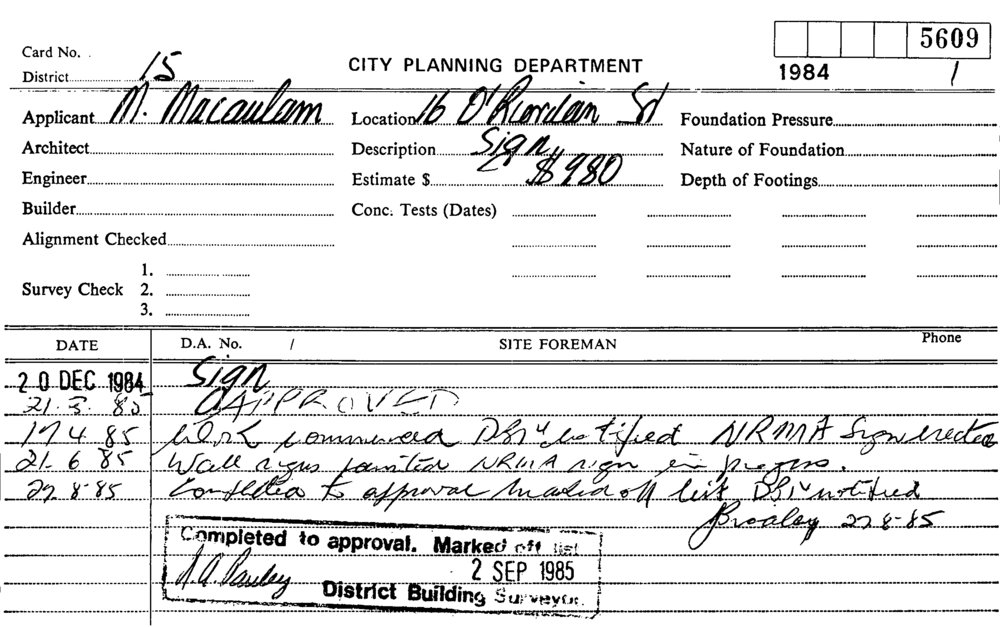 5609
Card No.
District 15
CITY PLANNING DEPARTMENT
1984 1
Applicant M. Macaulam
Location 16 O'Riordan St
Foundation Pressure
Architect
Description Sign
Nature of Foundation
Engineer
Estimate $ $980
Depth of Footings
Builder
Conc. Tests (Dates)
Alignment Checked
1.
Survey Check 2.
3.
DATE D.A. No. / SITE FOREMAN Phone
20 DEC 1984 Sign
21.3.85 APPROVED
17.4.85 Work commenced notified NRMA Sign erected
21.6.85 Wall signs painted NRMA sign in progress.
27.8.85 Completed to approval marked off list notified
27.8.85
Completed to approval. Marked off list
2 SEP 1985
District Building Surveyor.